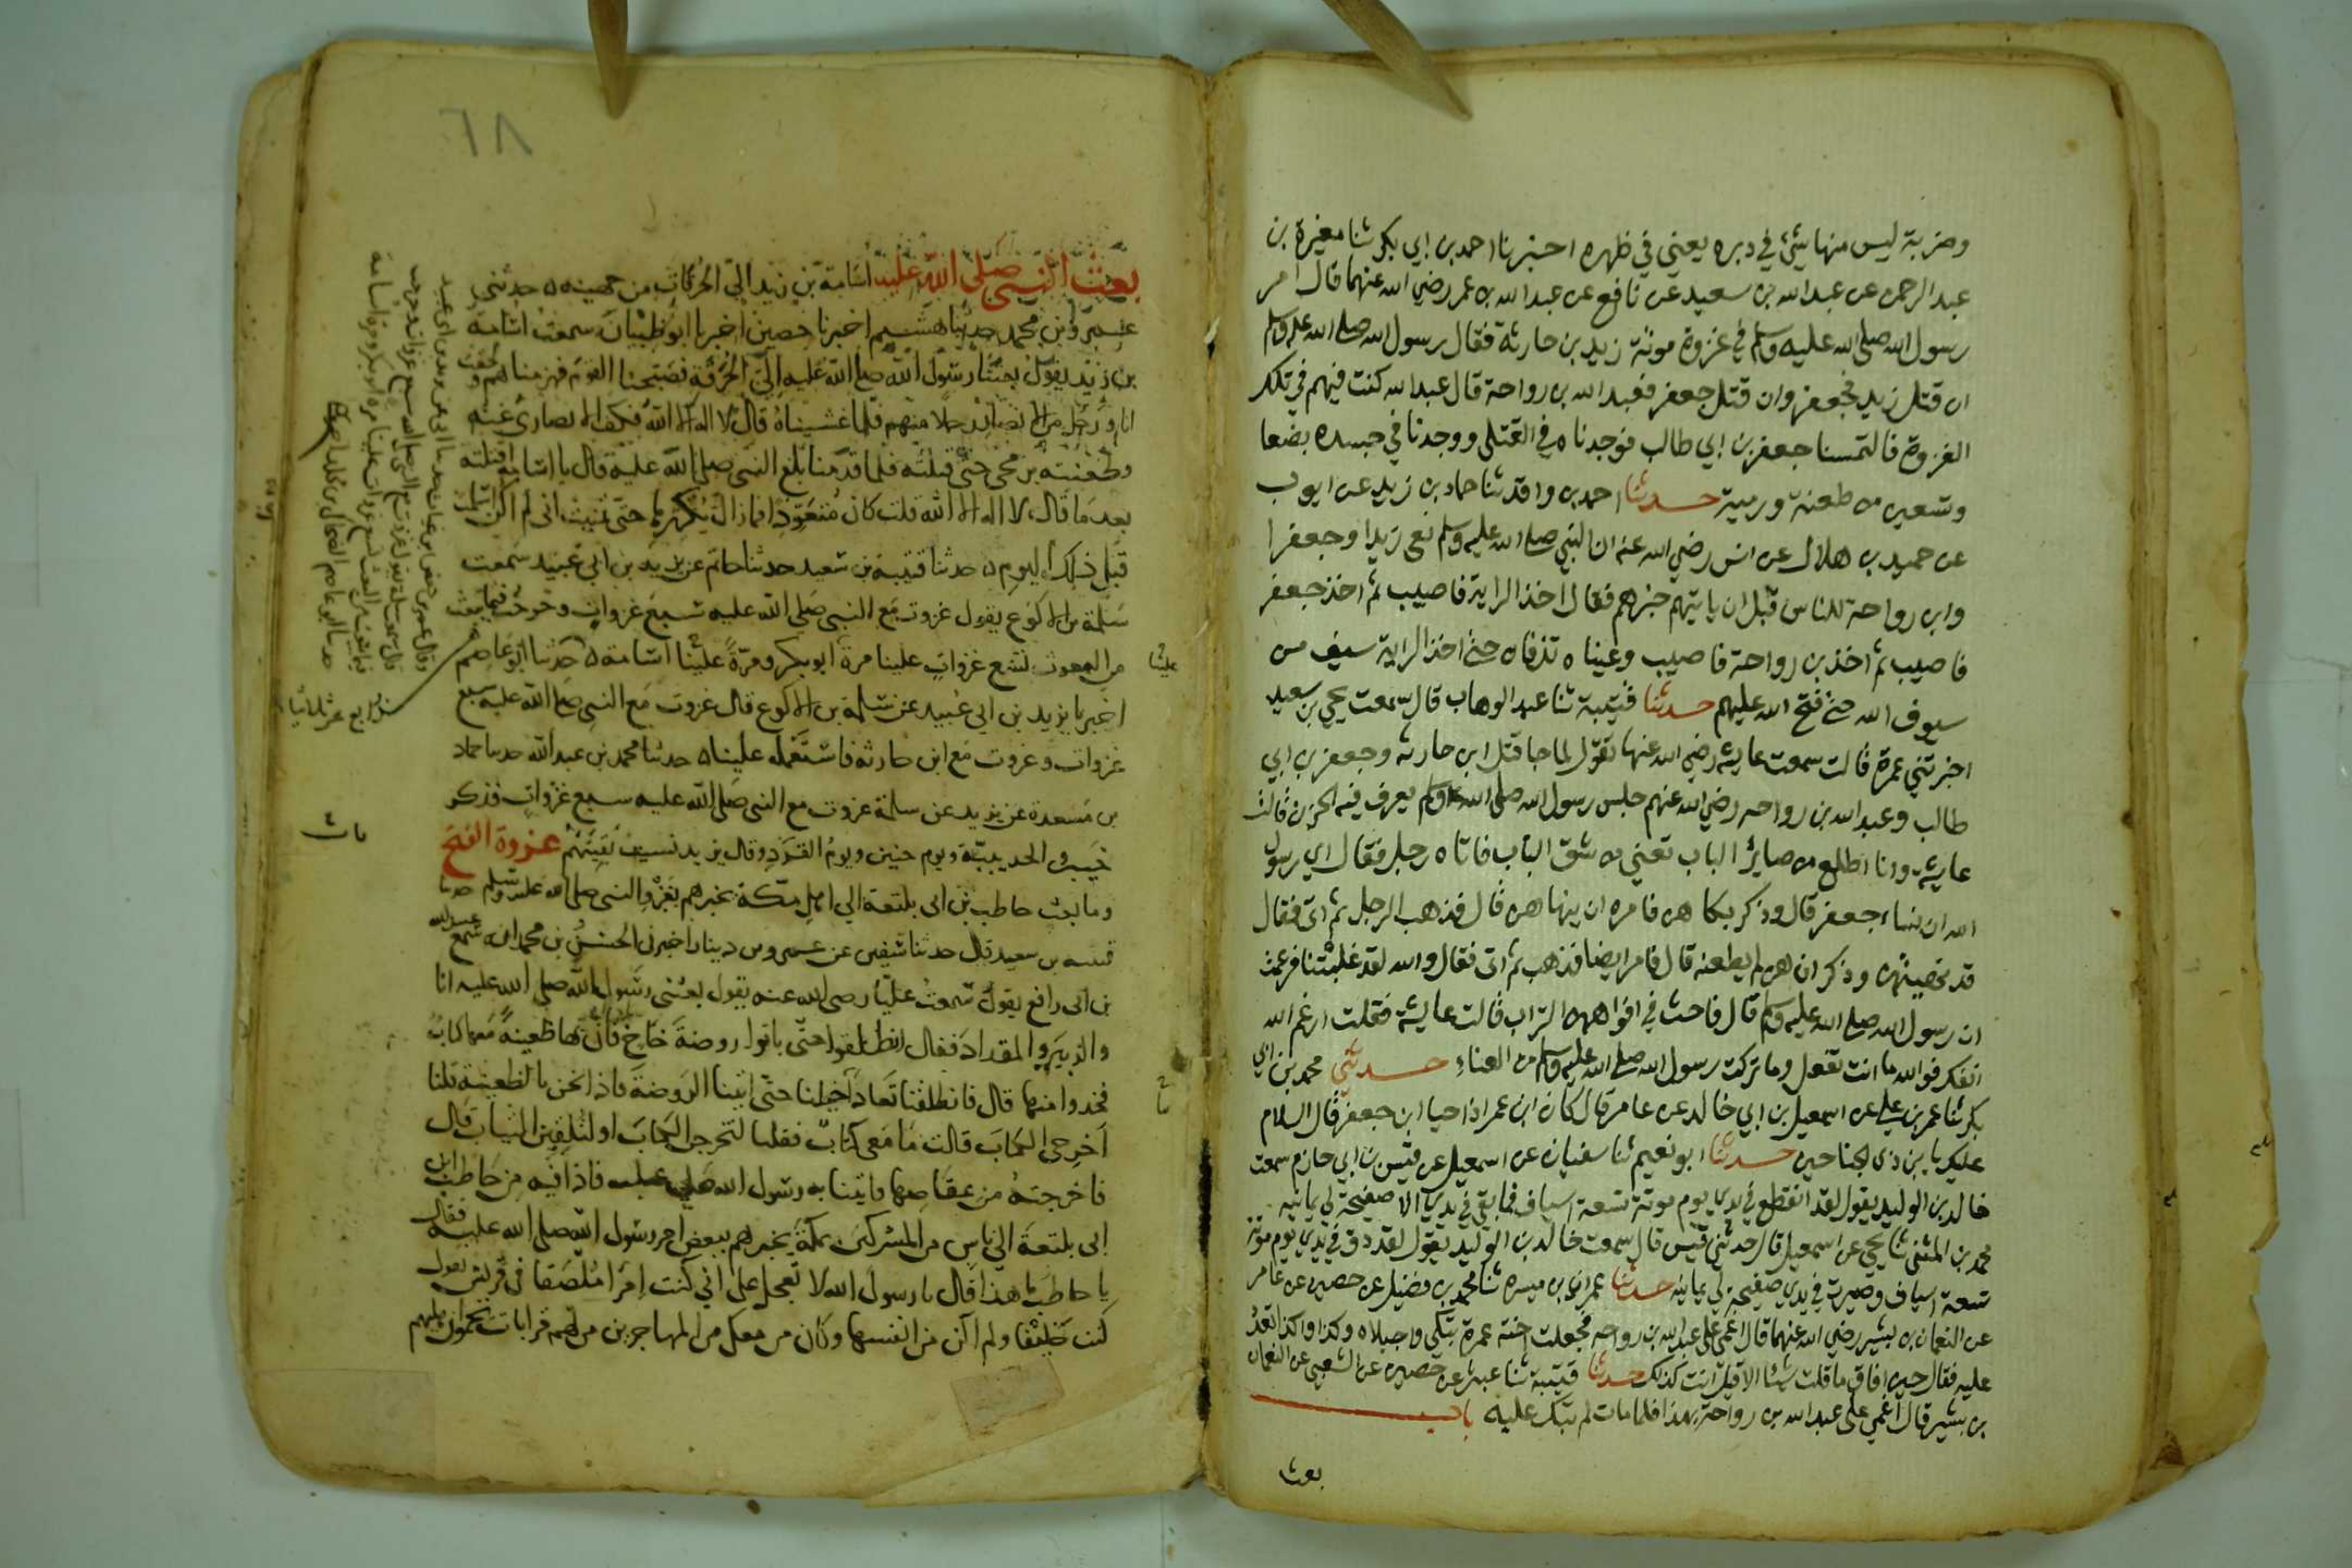 وضربة ليس منها شيء في دبره يعني في ظهره اخبرنا احمد بن ابي بكر ثنا مغيرة بن
عبد الرحمن عن عبد الله بن سعيد عن نافع عن عبد الله بن عمر رضي الله عنهما قال امر
رسول الله صلى الله عليه وسلم في غزوة موتة زيد بن حارثة فقال رسول الله صلى الله عليه وسلم
ان قتل زيد فجعفر وان قتل جعفر فعبد الله بن رواحة قال عبد الله كنت فيهم في تلك
الغزوة فالتمسنا جعفر بن ابي طالب فوجدناه في القتلى ووجدنا في جسده بضعا
وتسعين من طعنة ورمية حدثنا احمد بن واقد ثنا حماد بن زيد عن ايوب
عن حميد بن هلال عن انس رضي الله عنه ان النبي صلى الله عليه وسلم نعى زيدا وجعفرا
وابن رواحة للناس قبل ان ياتيهم خبرهم فقال اخذ الراية فاصيب ثم اخذ جعفر
فاصيب ثم اخذ بن رواحة فاصيب وعيناه تذرفان حتى اخذ الراية سيف من
سيوف الله حتى فتح الله عليهم حدثنا قتيبة ثنا عبد الوهاب قال سمعت يحيى بن سعيد
اخبرتني عمرة قالت سمعت عايشة رضي الله عنها تقول لما جا قتل ابن حارثة وجعفر بن ابي
طالب وعبد الله بن رواحه رضي الله عنهم جلس رسول الله صلى الله عليه وسلم يعرف فيه الحزن قالت
عايشة وانا اطلع من صاير الباب تعني من شق الباب فاتاه رجل فقال اي رسول
الله ان نساء جعفر قال وذكر بكاهن فامره ان ينهاهن قال فذهب الرجل ثم اتى فقال
قد نهيتهن وذكر ان هن لم يطعنه قال فامر ايضا فذهب ثم اتى فقال والله لقد غلبتنا فزعمت
ان رسول الله صلى الله عليه وسلم قال فاحث في افواههن التراب قالت عايشة فقلت ارغم الله
انفك فوالله ما انت تفعل وما تركت رسول الله صلى الله عليه وسلم من العناء حدثني محمد بن ابي
بكر ثنا عمر بن علي عن اسمعيل بن ابي خالد عن عامر قال كان ابن عمر اذا حيا ابن جعفر قال السلام
عليك يا بن ذي الجناحين حدثنا ابو نعيم ثنا سفيان عن اسمعيل عن قيس بن ابي حازم سمعت
خالد بن الوليد يقول لقد انقطع في يدي يوم موتة تسعة اسياف فما بقي في يدي الا صفيحة لي يمانيه
محمد بن المثنى ثنا يحيى عن اسمعيل قال حدثني قيس قال سمعت خالد بن الوليد يقول لقد دق في يدي يوم موتة
تسعة اسياف وصبرت في يدي صفيحة لي يمانيه حدثنا عمران بن ميسرة ثنا محمد بن فضيل عن حصين عن عامر
عن النعمان بن بشير رضي الله عنهما قال اغمي على عبد الله بن رواحه فجعلت اخته عمرة تبكي واجبلاه وكذا واكذا تعدد
عليه فقال حين افاق ما قلت شيئا الا قيل انت كذلك حدثنا قتيبة ثنا عبثر عن حصين عن الشعبي عن النعمان
بن بشير قال اغمي على عبد الله بن رواحة بهذا فلما مات لم تبك عليه باب
بعث
٦٨
بعث النبي صلى الله عليه اسامة بن زيد الى الحرقات من جهينه حدثني
عمرو بن محمد حدثنا هشيم اخبرنا حصين اخبرنا ابو ظبيان سمعت اسامة
بن زيد يقول بعثنا رسول الله صلى الله عليه الى الحرقة فصبحنا القوم فهزمناهم ولحقت
انا ورجل من الانصار رجلا منهم فلما غشيناه قال لا اله الا الله فكف الانصاري عنه
وطعنته برمحي حتى قتلته فلما قدمنا بلغ النبي صلى الله عليه قال يا اسامه اقتلته
بعد ما قال لا اله الا الله قلت كان متعوذا فما زال يكررها حتى تمنيت اني لم اكن اسلمت
قبل ذلك اليوم حدثنا قتيبة بن سعيد حدثنا حاتم عن يزيد بن ابي عبيد سمعت
سلمة بن الاكوع يقول غزوت مع النبي صلى الله عليه سبع غزوات وخرجت فيما يبعث
من البعوث تسع غزوات علينا مرة ابو بكر ومرة علينا اسامة حدثنا ابو عاصم
اخبرنا يزيد بن ابي عبيد عن سلمة بن الاكوع قال غزوت مع النبي صلى الله عليه سبع
غزوات وغزوت مع ابن حارثه فاستعمله علينا حدثنا محمد بن عبد الله حدثنا حماد
بن مسعدة عن يزيد عن سلمة غزوت مع النبي صلى الله عليه سبع غزوات فذكر
خيبر والحديبية ويوم حنين ويوم القرد وقال يزيد نسيت بقيتهم غزوة الفتح
وما بعث حاطب بن ابي بلتعة الى اهل مكة يخبرهم بغزو النبي صلى الله عليه وسلم حدثنا
قتيبه بن سعيد قال حدثنا سفين عن عمرو بن دينار اخبرني الحسن بن محمد انه سمع عبيد الله
بن ابي رافع يقول سمعت عليا رضي الله عنه يقول بعثني رسول الله صلى الله عليه انا
والزبير والمقداد فقال انطلقوا حتى تاتوا روضة خاخ فان بها ظعينة معها كتاب
فخذوا منها قال فانطلقنا تعادى خيلنا حتى اتينا الروضة فاذا نحن بالظعينة قلنا
اخرجي الكتاب قالت ما معي كتاب فقلنا لتخرجن الكتاب او لنلقين الثياب قال
فاخرجته من عقاصها فاتينا به رسول الله صلى عليه فاذا فيه من حاطب ابن
ابي بلتعة الى ناس من المشركين بمكة يخبرهم ببعض امر رسول الله صلى الله عليه فقال
يا حاطب ما هذا قال يا رسول الله لا تعجل علي اني كنت امرا ملصقا في قريش يقول
كنت حليفا ولم اكن من انفسها وكان من معك من المهاجرين من لهم قرابات يحمون اهليهم
باب